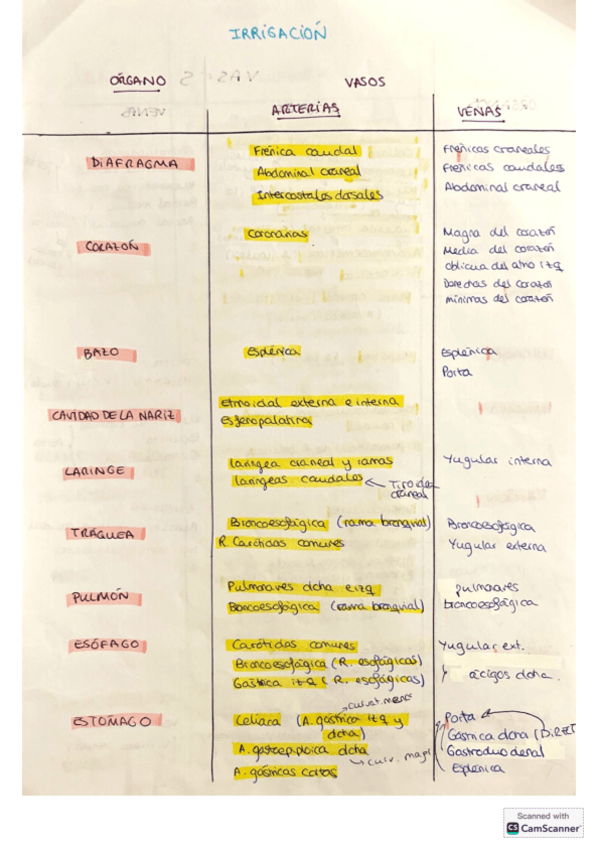 IRRIGACIÓN
ÓRGANO VASOS
ARTERIAS VENAS
DIAFRAGMA
Frénica caudal
Abdominal craneal
Intercostales dorsales
Frénicas craneales
Frénicas caudales
Abdominal craneal
CORAZÓN
Coronarias
Magna del corazón
Media del corazón
oblicua del atrio izq
Derechas del corazón
mínimas del corazón
BAZO
Esplénica
Esplénica
Porta
CAVIDAD DE LA NARIZ
Etmoidal externa e interna
Esfenopalatina
LARINGE
laríngea craneal y ramas
laríngeas caudales ← Tiroidea
craneal
Yugular interna
TRÁQUEA
Broncoesofágica (rama bronquial)
R. Carótidas comunes
Broncoesofágica
Yugular externa
PULMÓN
Pulmonares dcha e izq
Broncoesofágica (rama bronquial)
pulmonares
broncoesofágica
ESÓFAGO
Carótidas comunes
Broncoesofágica (R. esofágicas)
Gástrica izq (R. esofágicas)
Yugular ext.
ácigos dcha.
ESTÓMAGO
curvat. menor
Celiaca (A. gástrica izq y
dcha)
A. gastroepiploica dcha
curv. mayor
A. gástricas cortas
Porta
Gástrica dcha (DIRECT
Gastroduodenal
Esplénica
Scanned with
CS CamScanner